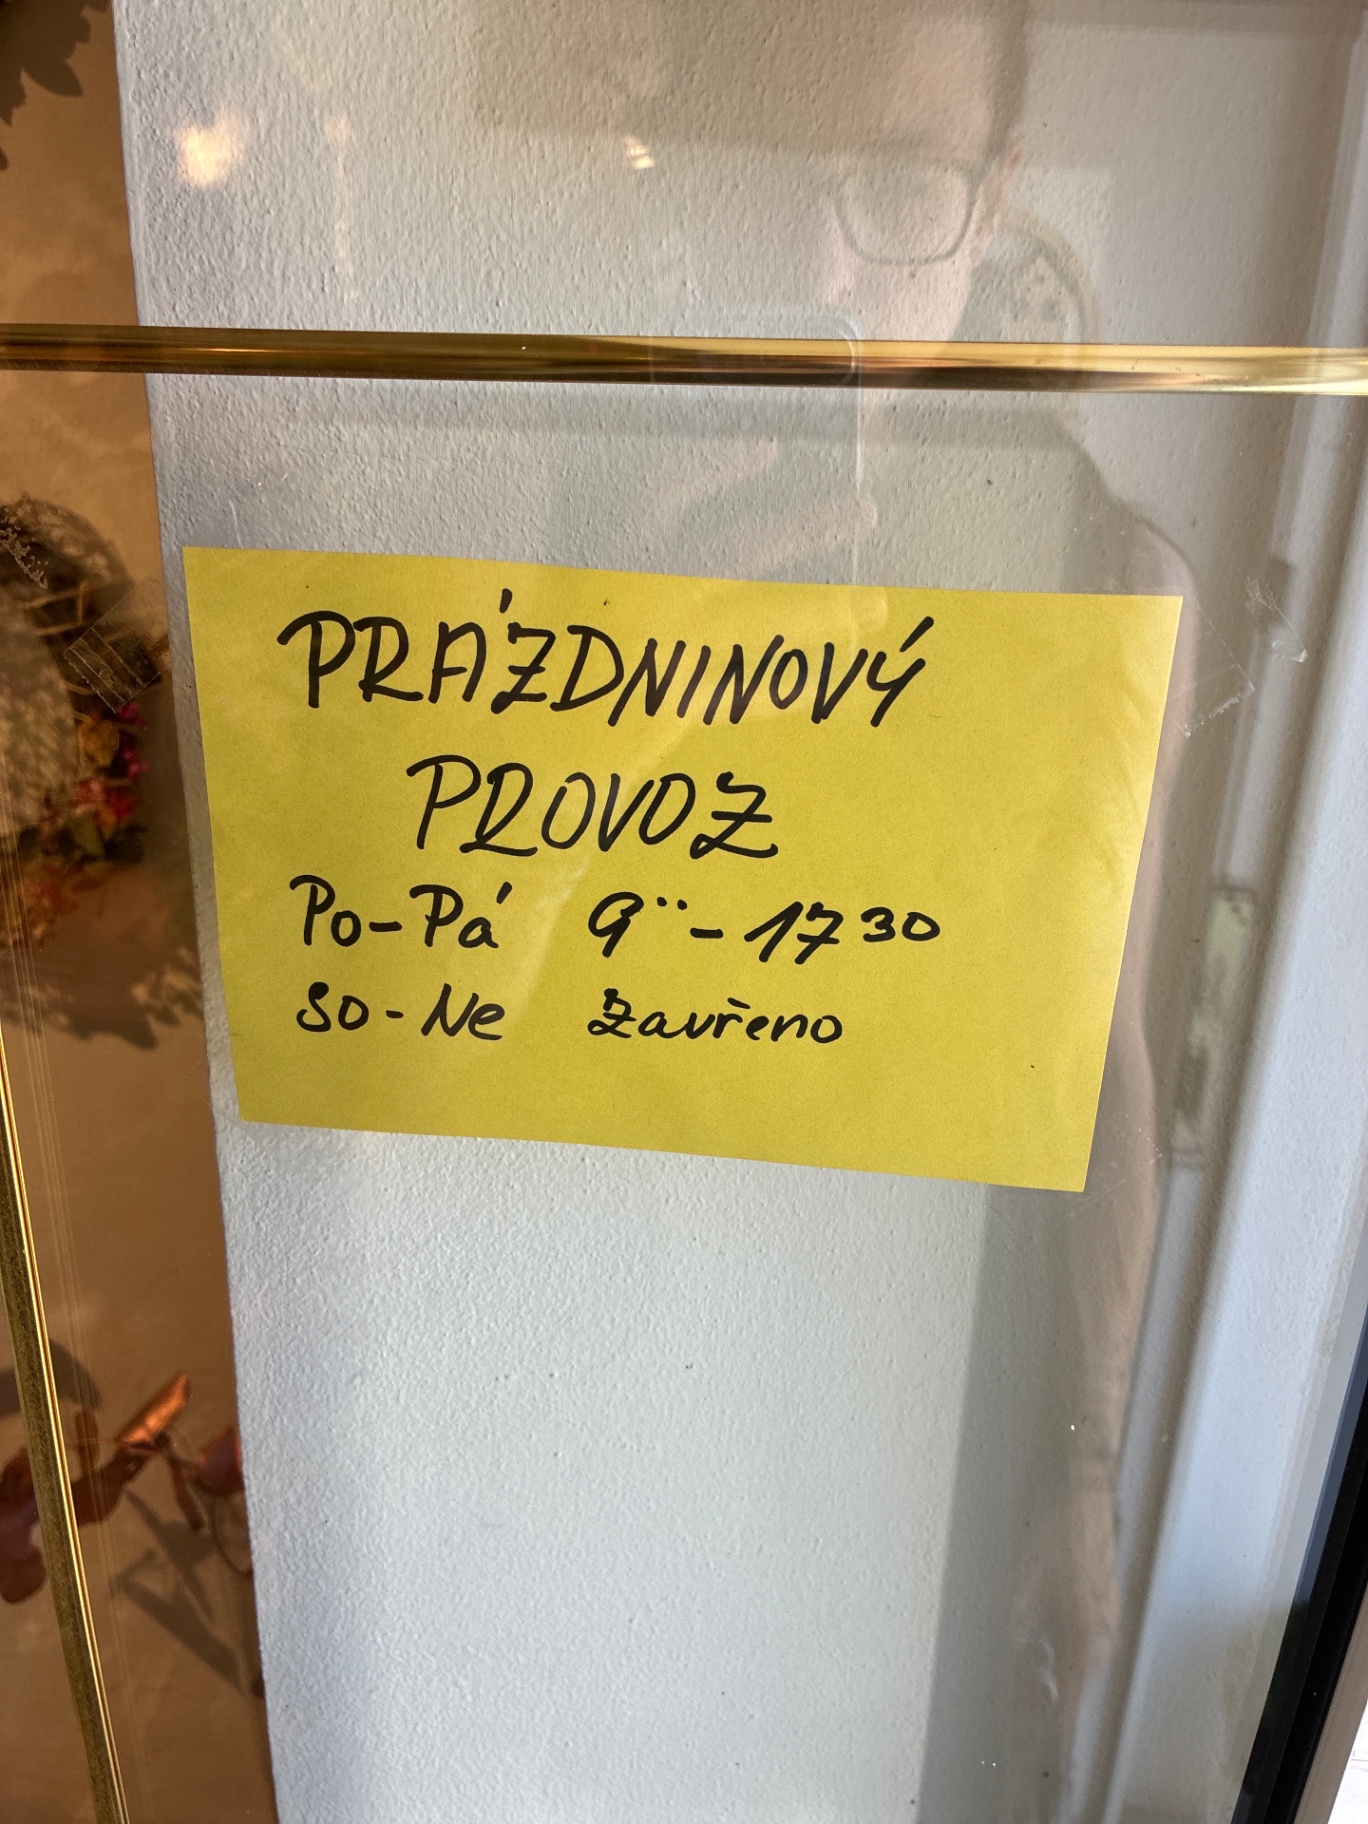 PRÁZDNINOVÝ
PROVOZ
Po-Pá 9¨ - 17 30
SO-Ne Zavřeno